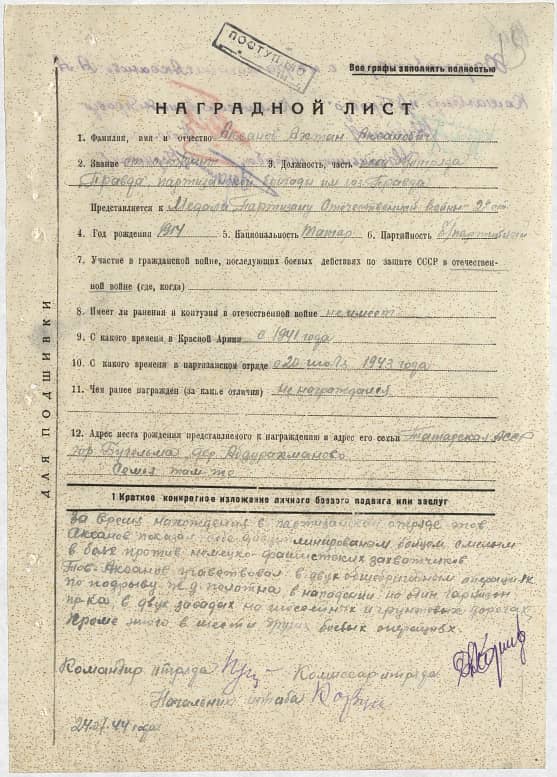 ПОСТУПИЛ
Все графы заполнять полностью
НАГРАДНОЙ ЛИСТ
1. Фамилия, имя и отчество Аксанов Ахтын Аксанович
2. Звание 3. Должность, часть отряда
Правда партизанской бригады им. газ. Правда
Представляется к Медали Партизану Отечественной войны 2й ст.
4. Год рождения 1917 5. Национальность Татар 6. Партийность б/партийный
7. Участие в гражданской войне, последующих боевых действиях по защите СССР в отечествен-
ной войне (где, когда)
8. Имеет ли ранения и контузии в отечественной войне не имеет
9. С какого времени в Красной Армии с 1941 года
10. С какого времени в партизанском отряде с 20 1943 года
11. Чем ранее награжден (за какие отличия) не награждался
12. Адрес места рождения представляемого к награждению и адрес его семьи Татарская АССР
гор. Бугульма дер. Абдурахманово
Семья там-же
ДЛЯ ПОДШИВКИ
1 Краткое конкретное изложение личного боевого подвига или заслуг
За время нахождения в партизанском отряде тов.
Аксанов показал себя дисциплинированым бойцом, смелым
в боях против немецко-фашистских захватчиков.
Тов. Аксанов участвовал в двух общебригадных операциях
по подрыву ж.д. полотна, в нападении на один гарнизон
пр-ка, в двух засадах на шоссейных и грунтовых дорогах.
Кроме этого в шести других боевых операциях.
Командир отряда Комиссар отряда
Начальник штаба
44 года